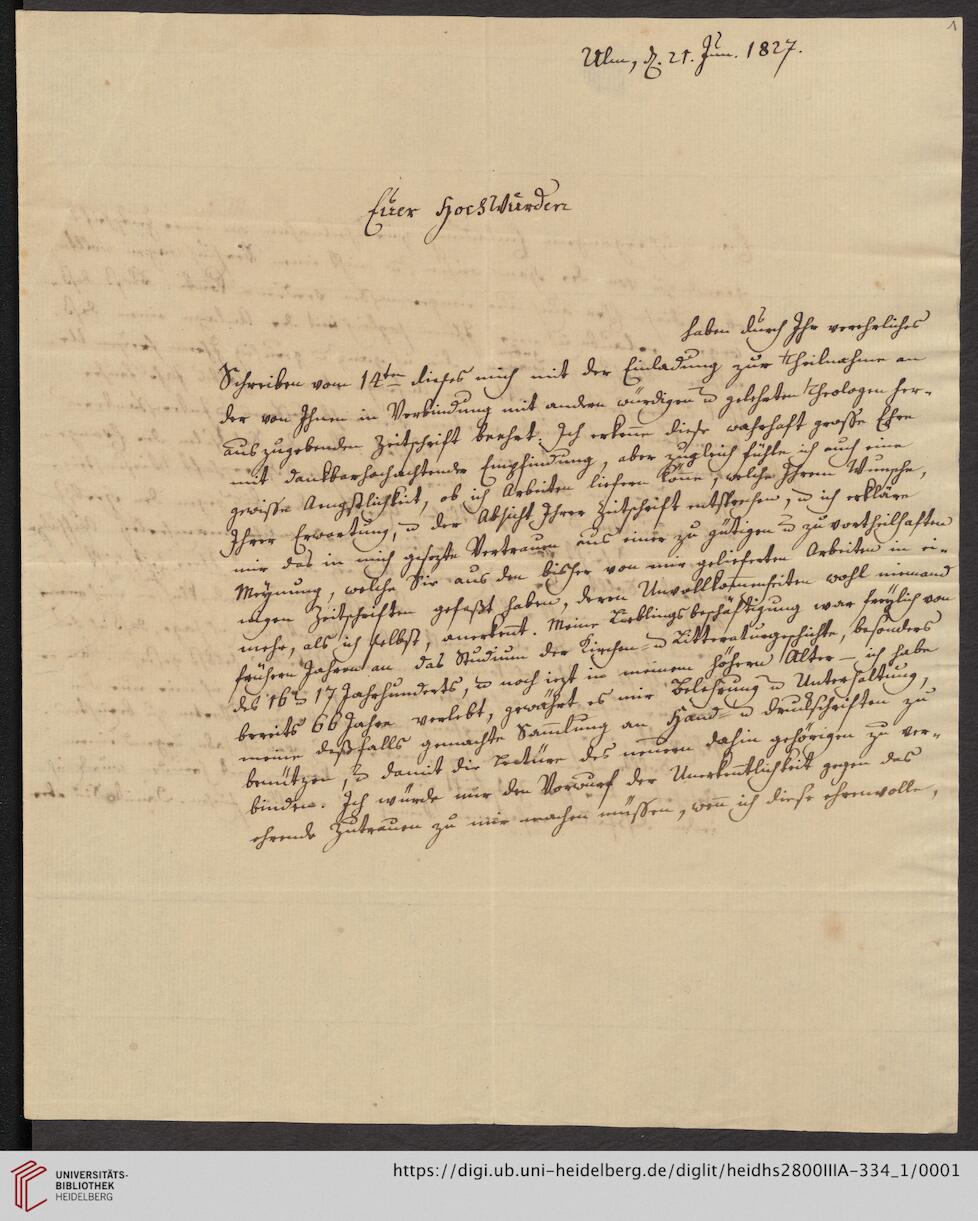 1
Ulm, d. 21. Jun. 1827.
Euer HochWürden
haben durch Ihr verehrliches
Schreiben vom 14ten dieses mich mit der Einladung zur Theilnahme an
der von Ihnen in Verbindung mit andern würdigen u gelehrten Theologen her-
auszugebenden Zeitschrift beehrt. Ich erkenne diese wahrhaft grosse Ehre
mit dankbarhochachtender Empfindung, aber zugleich fühle ich auch eine
gewisse Aengstlichkeit, ob ich Arbeiten liefern könne, welche Ihrem Wunsche,
Ihrer Erwartung, u der Absicht Ihrer Zeitschrift entsprechen, u ich erkläre
mir das in mich gesezte Vertrauen aus einer zu gütigen u zu vortheilhaften
Meynung, welche Sie aus den bisher von mir gelieferten Arbeiten in ei-
nigen Zeitschriften gefaßt haben, deren Unvollkomenheiten wohl niemand
mehr, als ich selbst, anerkennt. Meine Lieblingsbeschäftigung war freylich von
frühern Jahren an das Studium der Kirchen- u Litteraturgeschichte, besonders
des 16 u 17 Jahrhunderts, u noch iezt in meinem höhern Alter – ich habe
bereits 66 Jahre verlebt, gewährt es mir Belehrung u Unterhaltung,
meine deßfalls gemachte Sammlung an Hand- u Druckschriften zu
benützen, u damit die Lectüre des neuern dahin gehörigen zu ver-
binden. Ich würde mir den Vorwurf der Unerkenntlichkeit gegen das
ehrende Zutrauen zu mir machen müssen, wenn ich diese ehrenvolle,
UNIVERSITÄTS-
BIBLIOTHEK
HEIDELBERG
https://digi.ub.uni-heidelberg.de/diglit/heidhs2800IIIA-334_1/0001